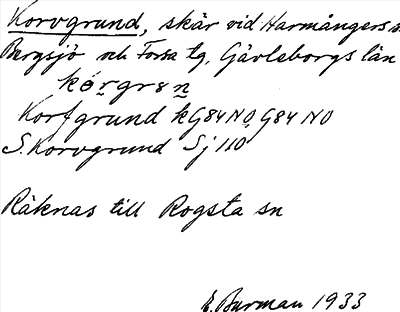 Korvgrund, skär vid Harmångers s
Bergsjö och Forsa tg, Gävleborgs län
Korfgrund kG84NO, G84 NO
S. Korvgrund Sj 110
Räknas till Rogsta sn
E. Burman 1933